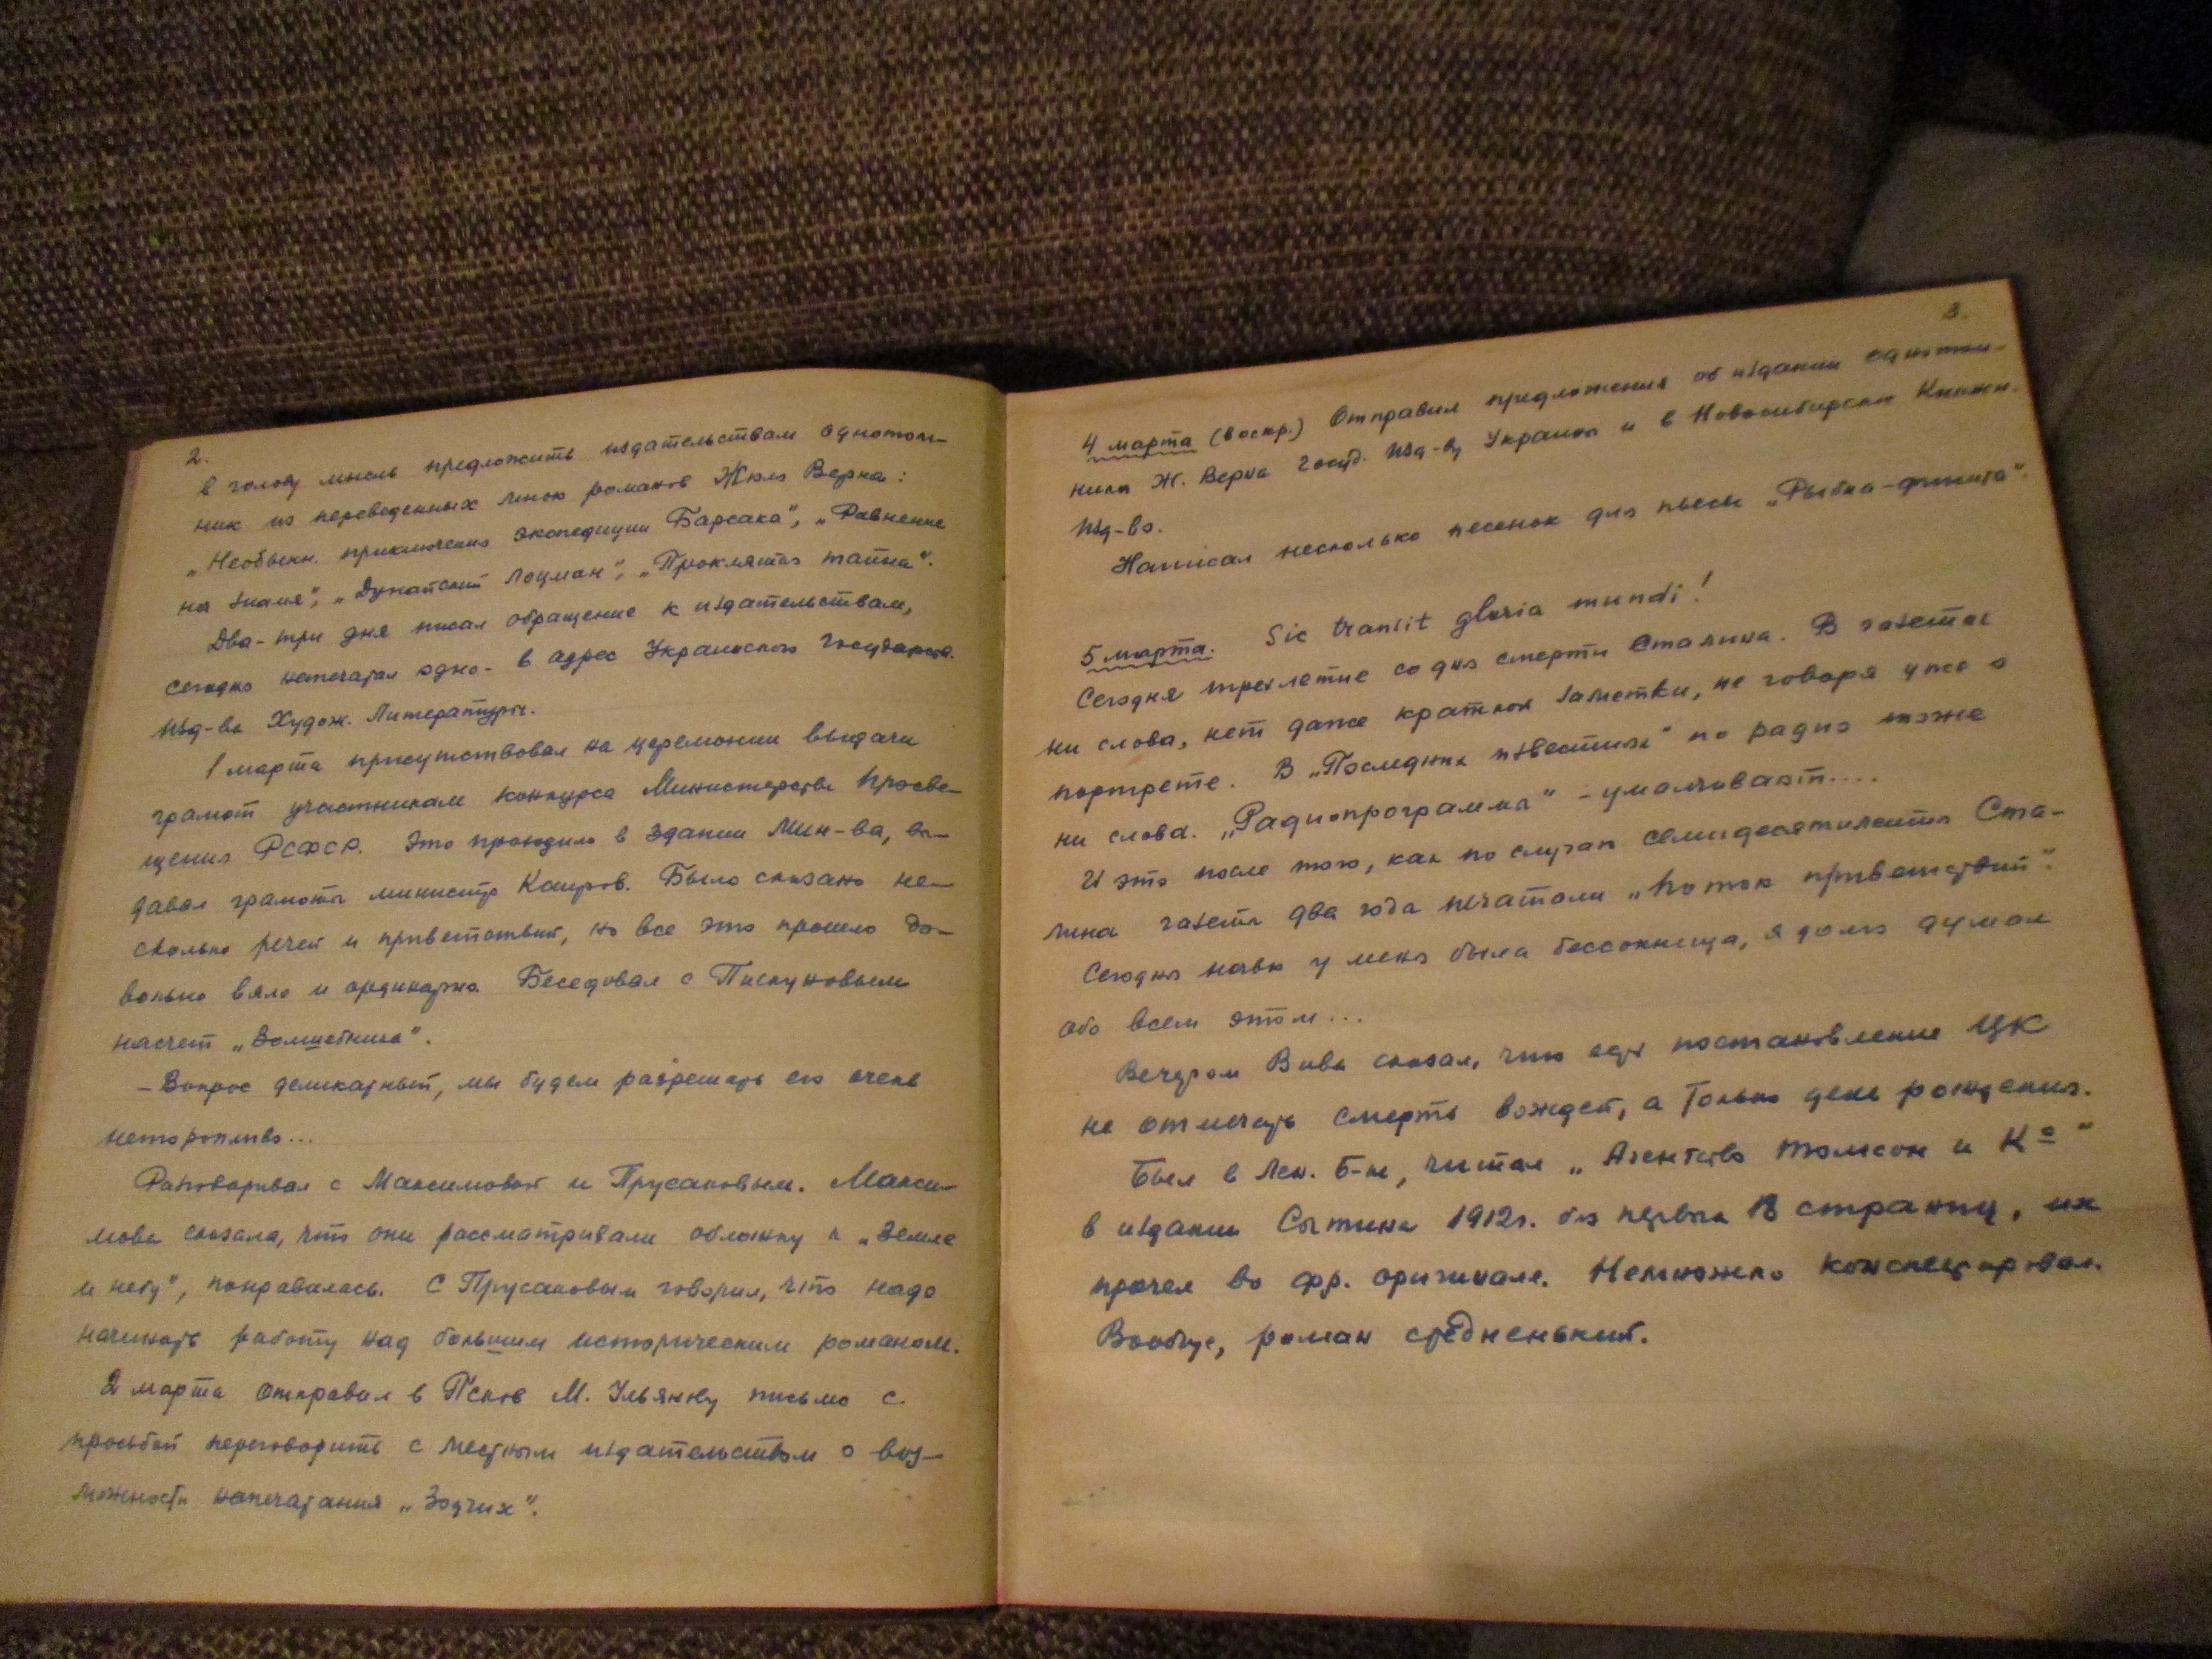 2.
в голову мысль предложить издательствам однотом-
ник из переведенных мною романов Жюля Верна:
„Необыкн. приключения экспедиции Барсака", „Равнение
на знамя", „Дунайский лоцман", „Проклятая тайна".
Два-три дня писал обращение к издательствам,
сегодня напечатал одно - в адрес Украинского Государств.
Изд-ва Худож. Литературы.
1 марта присутствовал на церемонии выдачи
грамот участникам конкурса Министерства Просве-
щения РСФСР. Это проходило в здании Мин-ва, вы-
давал грамоты министр Каиров. Было сказано не-
сколько речей и приветствий, но все это прошло до-
вольно вяло и ординарно. Беседовал с Пискуновым
насчет „Волшебника".
- Вопрос деликатный, мы будем разрешать его очень
неторопливо...
Разговаривал с Максимовой и Прусаковым. Макси-
мова сказала, что они рассматривали обложку к „Земле
и небу", понравилась. С Прусаковым говорил, что надо
начинать работу над большим историческим романом.
2 марта отправил в Псков М. Ульянову письмо с
просьбой переговорить с местным издательством о воз-
можности напечатания „Зодчих".
3.
4 марта (воскр.) Отправил предложения об издании однотом-
ника Ж. Верна Госуд. Изд-ву Украины и в Новосибирское Книжн.
Изд-во.
Написал несколько песенок для пьесы „Рыбка-финита".
5 марта. Sic transit gloria mundi!
Сегодня трехлетие со дня смерти Сталина. В газетах
ни слова, нет даже краткой заметки, не говоря уже о
портрете. В „Последних известиях" по радио тоже
ни слова. „Радиопрограмма" - умалчивает....
И это после того, как по случаю семидесятилетия Ста-
лина газеты два года печатали „Поток приветствий".
Сегодня ночью у меня была бессонница, я долго думал
обо всем этом...
Вечером Вива сказал, что есть постановление ЦК
не отмечать смерть вождей, а только день рождения.
Был в Лен. Б-ке, читал „Агентство Томсон и Кº"
в издании Сытина 1912г. без первых 18 страниц, их
прочел во фр. оригинале. Немножко конспектировал.
Вообще, роман средненький.